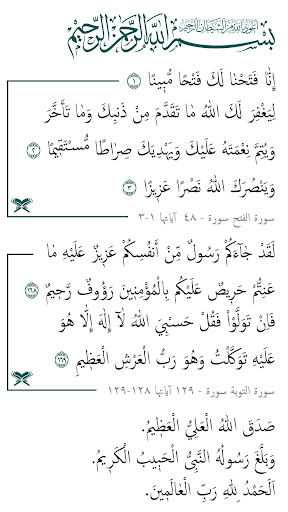 اعوذ بالله من الشيطان الرجيم
بسم الله الرحمن الرحيم
اِنَّا فَتَحْنَا لَكَ فَتْحًا مُّبٖينًا ﴿١﴾
لِيَغْفِرَ لَكَ اللهُ مَا تَقَدَّمَ مِنْ ذَنبِكَ وَمَا تَاَخَّرَ
وَيُتِمَّ نِعْمَتَهُ عَلَيْكَ وَيَهْدِيَكَ صِرَاطًا مُّسْتَقٖيمًا ﴿٢﴾
وَيَنْصُرَكَ اللهُ نَصْرًا عَزٖيزًا ﴿٣﴾
سورة الفتح سورة - ٤٨ آياتها ١-٣
لَقَدْ جَاءَكُمْ رَسُولٌ مِّنْ اَنفُسِكُمْ عَزٖيزٌ عَلَيْهِ مَا
عَنِتُّمْ حَرٖيصٌ عَلَيْكُم بِالْمُؤْمِنٖينَ رَؤُوفٌ رَّحٖيمٌ ﴿١٢٨﴾
فَاِنْ تَوَلَّوْا فَقُلْ حَسْبِيَ اللهُ لَا اِلٰهَ اِلَّا هُوَ
عَلَيْهِ تَوَكَّلْتُ وَهُوَ رَبُّ الْعَرْشِ الْعَظٖيمِ ﴿١٢٩﴾
سورة التوبة سورة - ١٢٩ آياتها ١٢٨-١٢٩
صَدَقَ اللهُ الْعَلِيُّ الْعَظٖيمُ.
وَبَلَّغَ رَسُولُهُ النَّبِيُّ الْحَبٖيبُ الْكَرٖيمُ.
اَلْحَمْدُ لِلّٰهِ رَبِّ الْعَالَمٖينَ.